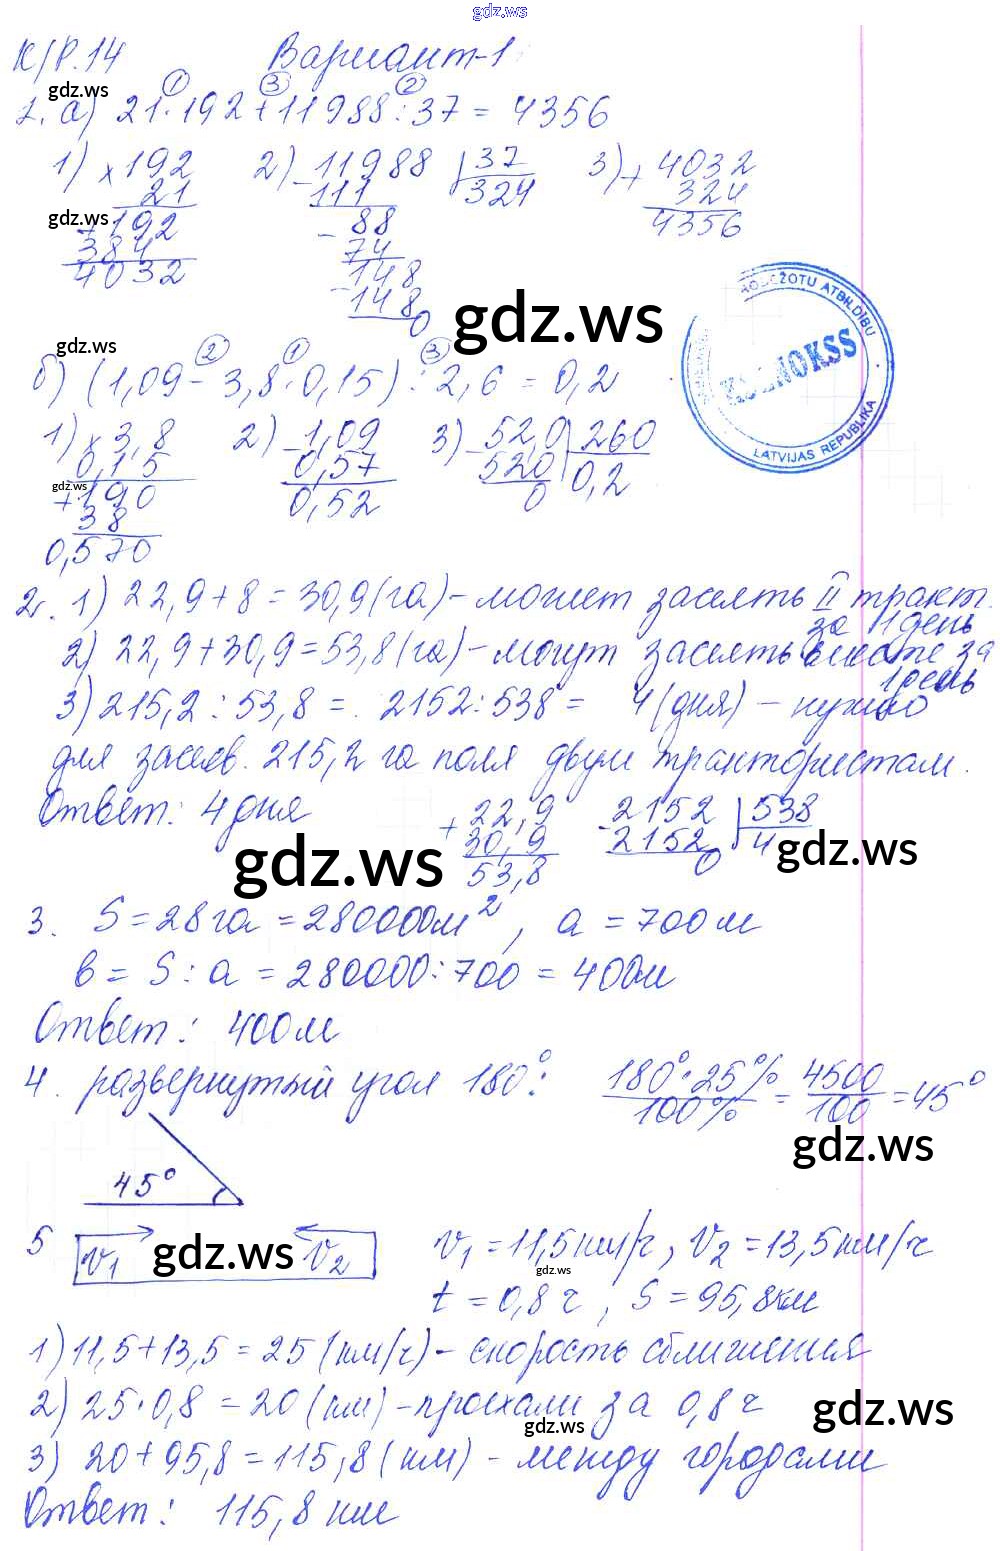 gdz.ws
К/Р.14 Вариант-1
gdz.ws
1. а) 21·192+11988:37 = 4356
① ③ ②
1) ×192 2) -11988 |37 3) +4032
21 111 324 324
gdz.ws
+192 - 88 4356
384 74
4032 -148
148
0
gdz.ws
AODEŽOTU ATBILDĪBU
KSENOKSS
LATVIJAS REPUBLIKA
gdz.ws
② ① ③
б) (1,09-3,8·0,15):2,6=0,2
1) ×3,8 2) -1,09 3) -52,0|260
0,15 0,57 520 0,2
gdz.ws
+190 0,52 0
38
0,570
2. 1) 22,9+8=30,9(га)-может засеять II тракт.
за 1 день
2) 22,9+30,9=53,8(га)-могут засеять вместе за
1 день
3) 215,2:53,8 = 2152:538 = 4(дня) - нужно
для засев. 215,2 га поля двум трактористам.
Ответ: 4 дня +22,9 -2152|538
30,9 2152 4
53,8 0
gdz.ws
gdz.ws
3. S=28га=280000м², a=700м
в = S:a = 280000:700 = 400м
Ответ: 400м
4. развернутый угол 180°: 180°·25%/100% = 4500/100 = 45°
gdz.ws
45°
5 v₁ gdz.ws v₂ v₁=11,5км/ч, v₂=13,5км/ч
gdz.ws
t=0,8ч, S=95,8км
1) 11,5+13,5=25(км/ч)-скорость сближения
2) 25·0,8=20(км)-проехали за 0,8ч
gdz.ws
gdz.ws
3) 20+95,8=115,8(км)-между городами
Ответ: 115,8 км